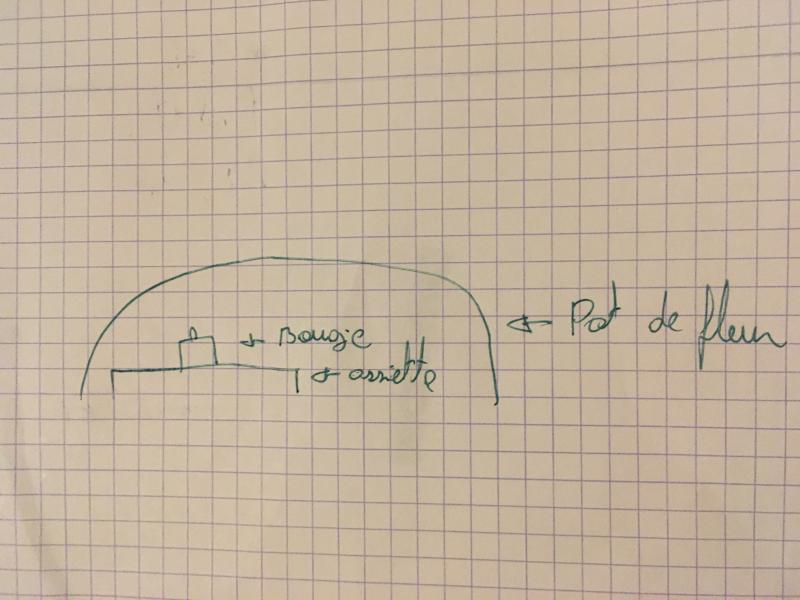 Pot de fleur
Bougie
assiette